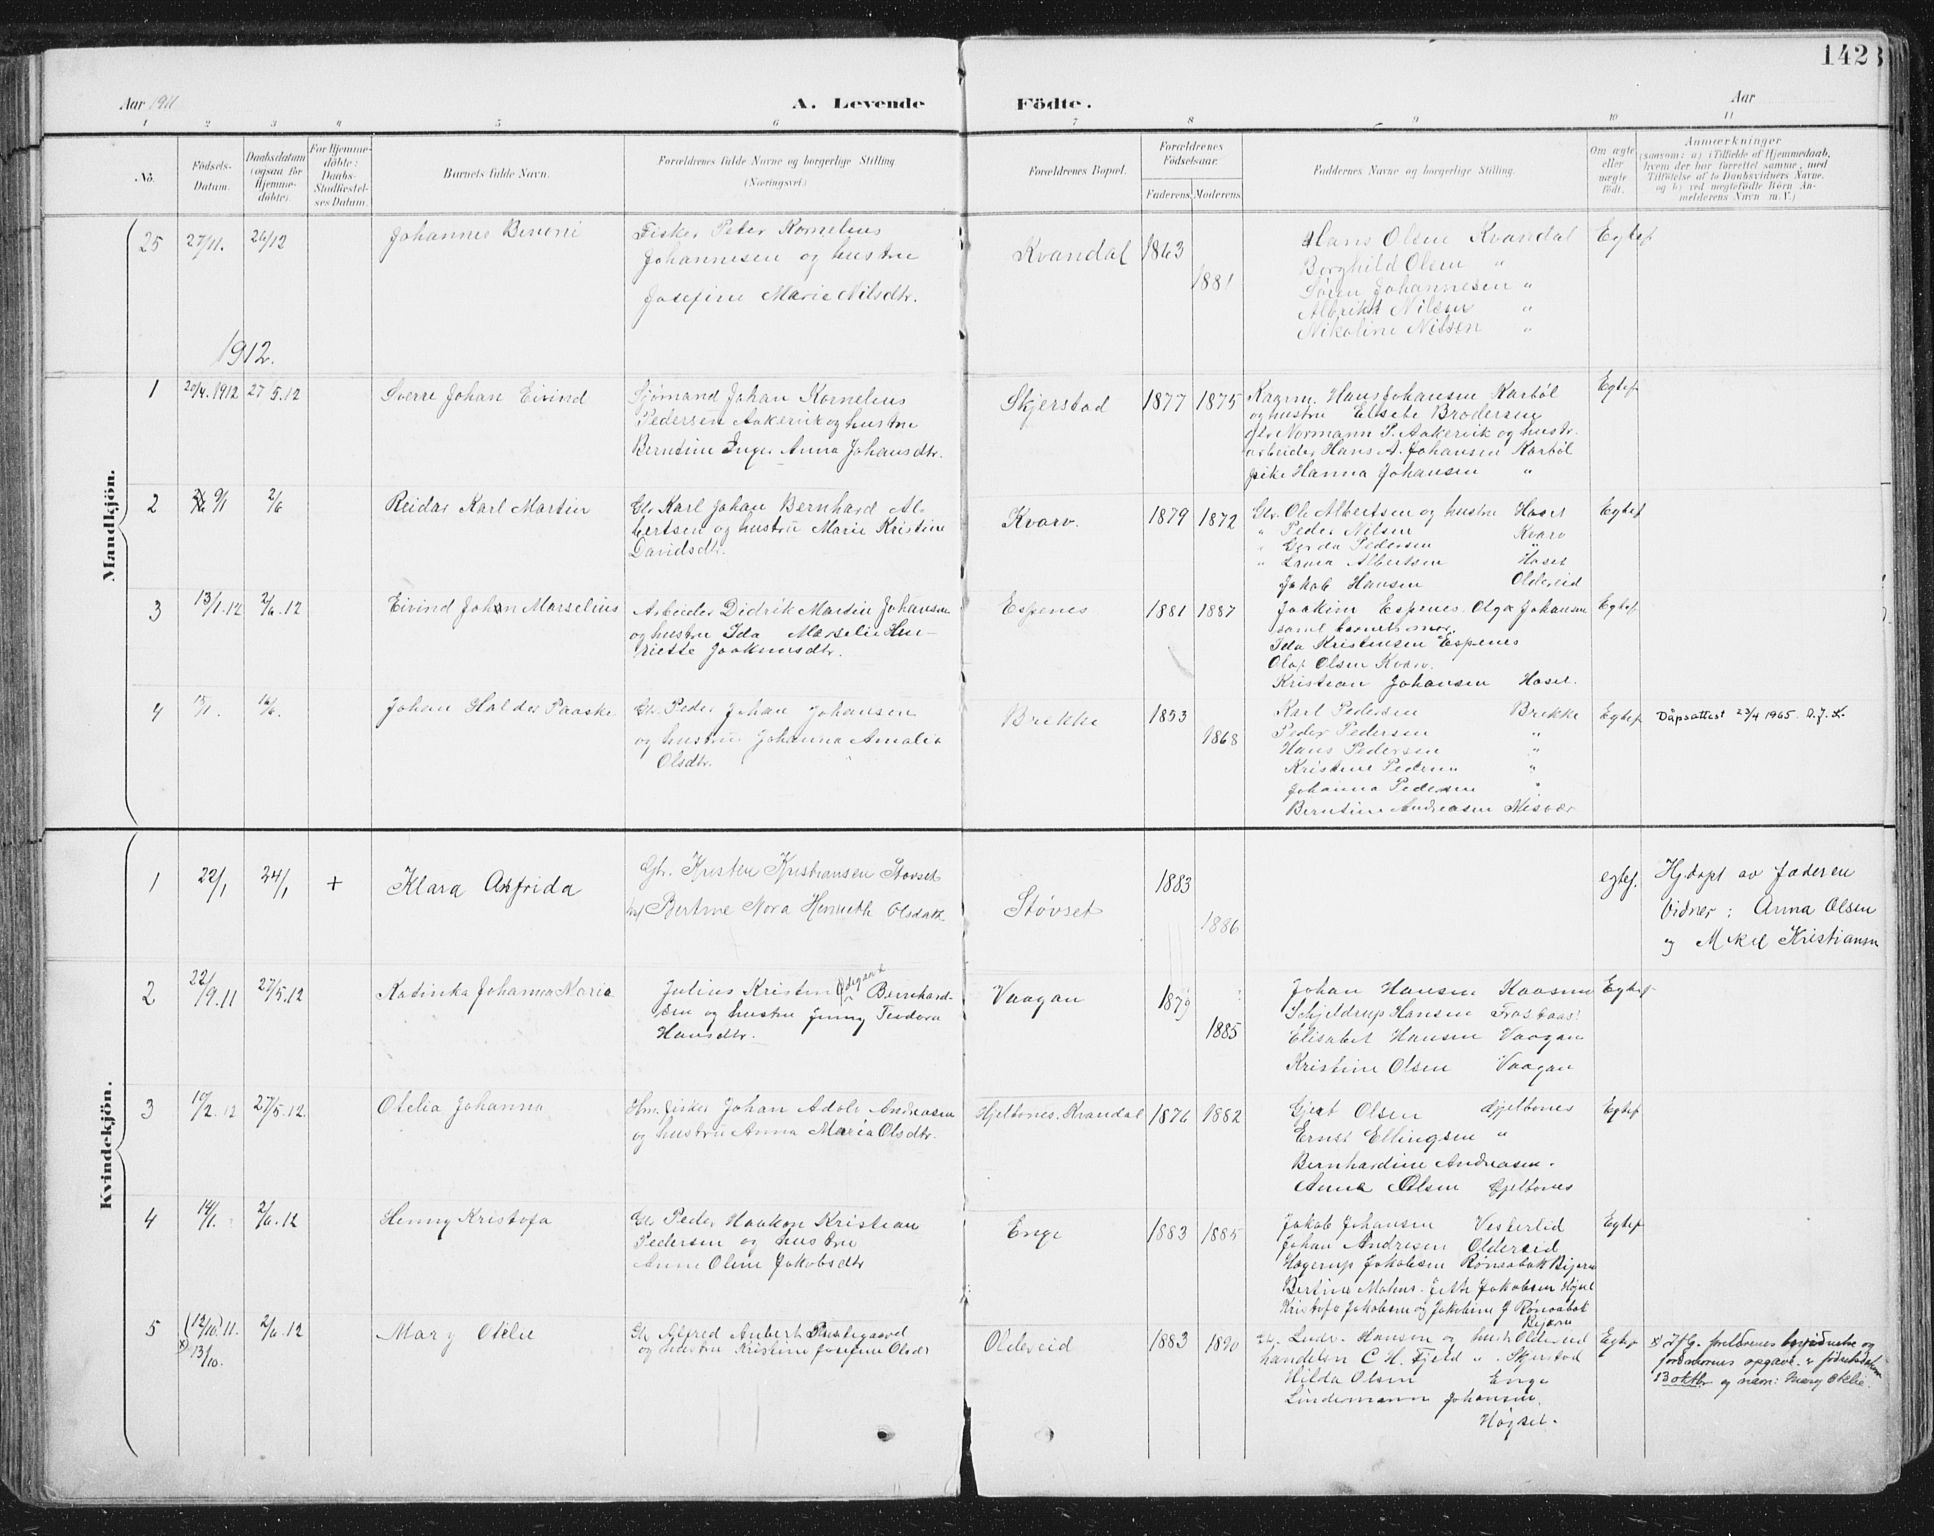 142
Aar 1911
A. Levende Födte.
Aar
1 2 3 4 5 6 7 8 9 10 11
No.
Födsels-
Datum.
Daabsdatum
(ogsaa for
Hjemme-
döbte).
For Hjemme-
döbte:
Daabs-
Stadfæstel-
ses Datum.
Barnets fulde Navn.
Forældrenes fulde Navne og borgerlige Stilling
(Næringsvei)
Forældrenes Bopæl.
Forældrenes
Födselsaar.
Faderens. Moderens.
Faddernes Navne og borgerlige Stilling.
Om ægte
eller
uægte
födt.
Anmærkninger
(saasom: a) i Tilfælde af Hjemmedaab,
hvem der har forrettet samme, med
Tilföielse af to Daabsvidners Navne,
og b) ved uegtefödte Börn An-
melderens Navn m. V.)
Mandkjön.
25 27/11. 26/12 Johannes
Fisker Peter Kornelius
Johannesen og hustru
Josefine Marie Nilsdtr.
Kvandal 1863 1881
Hans Olsen Kvandal
Borghild Olsen "
Sören Johannesen "
Albrikt Nilsen "
Nikoline Nilsen "
Egtef
1912.
1 20/4. 1912 27/5.12 Sverre Johan Eivind
Sjömand Johan Kornelius
Pedersen Aakervik og hustru
Berntine Inger Anna Johansdtr.
Skjerstad 1877 1875
Kaarm. Hans Johansen Karböl
og hustru Elsebe Brodersen
Normann P. Aakervik og hustr.
arbeider Hans A. Johansen Karböl
pike Hanna Johansen "
Egtef
2 9/1 2/6 Reidar Karl Martin
Gbr Karl Johan Bernhard Al-
bertsen og hustru Marie Kristine
Davidsdtr.
Kvarv. 1879 1872
Gbr. Ole Albertsen og hustru Hoset
" Peder Nilsen Kvarv
" Gerda Pedersen "
" Laura Albertsen Hoset
Jakob Hansen Oldereid
Egtef
3 13/1.12 2/6.12 Eivind Johan Marselius
Arbeider Didrik Martin Johansen
og hustru Ida Marselie Hen-
riette Joakimsdtr.
Espenes 1881 1887
Joakim Espenes. Olga Johansen
samt barnets mor.
Ida Kristensen Espenes
Olaf Olsen Kvarv.
Kristian Johansen Hoset.
Egtef
4 15/1. 16/6. Johan Halder Paaske
Gbr. Peder Johan Johansen
og hustru Johanna Amalia
Olsdtr.
Brekke 1853 1868
Karl Pedersen Brekke
Peder Pedersen "
Hans Pedersen "
Kristine Pedersen "
Johanna Pedersen "
Berntine Andreasen Misvær
Egtef Dåpsattest 23/4 1965. O.J.L.
Kvindekjön.
1 22/1 24/1 + Klara Asfrida
Gbr. Kristen Kristiansen Stövset
h/ Bertine Nora Henriette Olsdatt
Stövset 1883 1886
egtef. Hjdöpt av faderen
Vidner: Anna Olsen
og Mikel Kristiansen
2 22/9.11 27/5.12 Katinka Johanna Maria
Julius Kristen Odegaard Bernhard-
sen og hustru Jenny Teodora
Hansdtr.
Vaagan 1879 1885
Johan Hansen Kaasmo
Schjeldrup Hansen
Elisabet Hansen Vaagan
Kristine Olsen Vaagan
Egtef
3 10/2.12 27/5.12 Otelia Johanna
Hm. fisker Johan Adolv Andreasen
og hustru Anna Maria Olsdtr.
Hjelbones. Kvandal 1876 1882
Gjert Olsen Gjelbones
Ernst Ellingsen "
Bernhardine Andreasen.
Anna Olsen Gjelbones
Egtef
4 14/1. 2/6.12 Henny Kristofa
Gbr Peder Haakon Kristian
Pedersen og hustru
Anne Oline Jakobsdtr
Enge 1883 1885
Jakob Johansen Vesterlid
Johan Andresen Oldereid
Hagerup Jakobsen Rönsabakk Bjærn
Bertine Jakobsen
Kristofa Jakobsen og Jakobine J Rönsabak
Bjærn
Egtef
5 (12/10).11. 2/6.12 Mary Otelie
x) 13/10.
Gbr Alfred Anbert Prestegaard
og hustru Kristine Josefine Olsdt
Oldereid 1883 1890
Gbr. Ludv. Hansen og hustr. Oldereid
handelsm C. H. Fjeld " " Skjerstad
Hilda Olsen Enge
Lindemann Johansen.
Högset.
Egtef x) Ifg. foreldrenes bevidnelse og
jordmorens opgave er födselsdatoen
13 oktbr og navn: Mary Otelie.